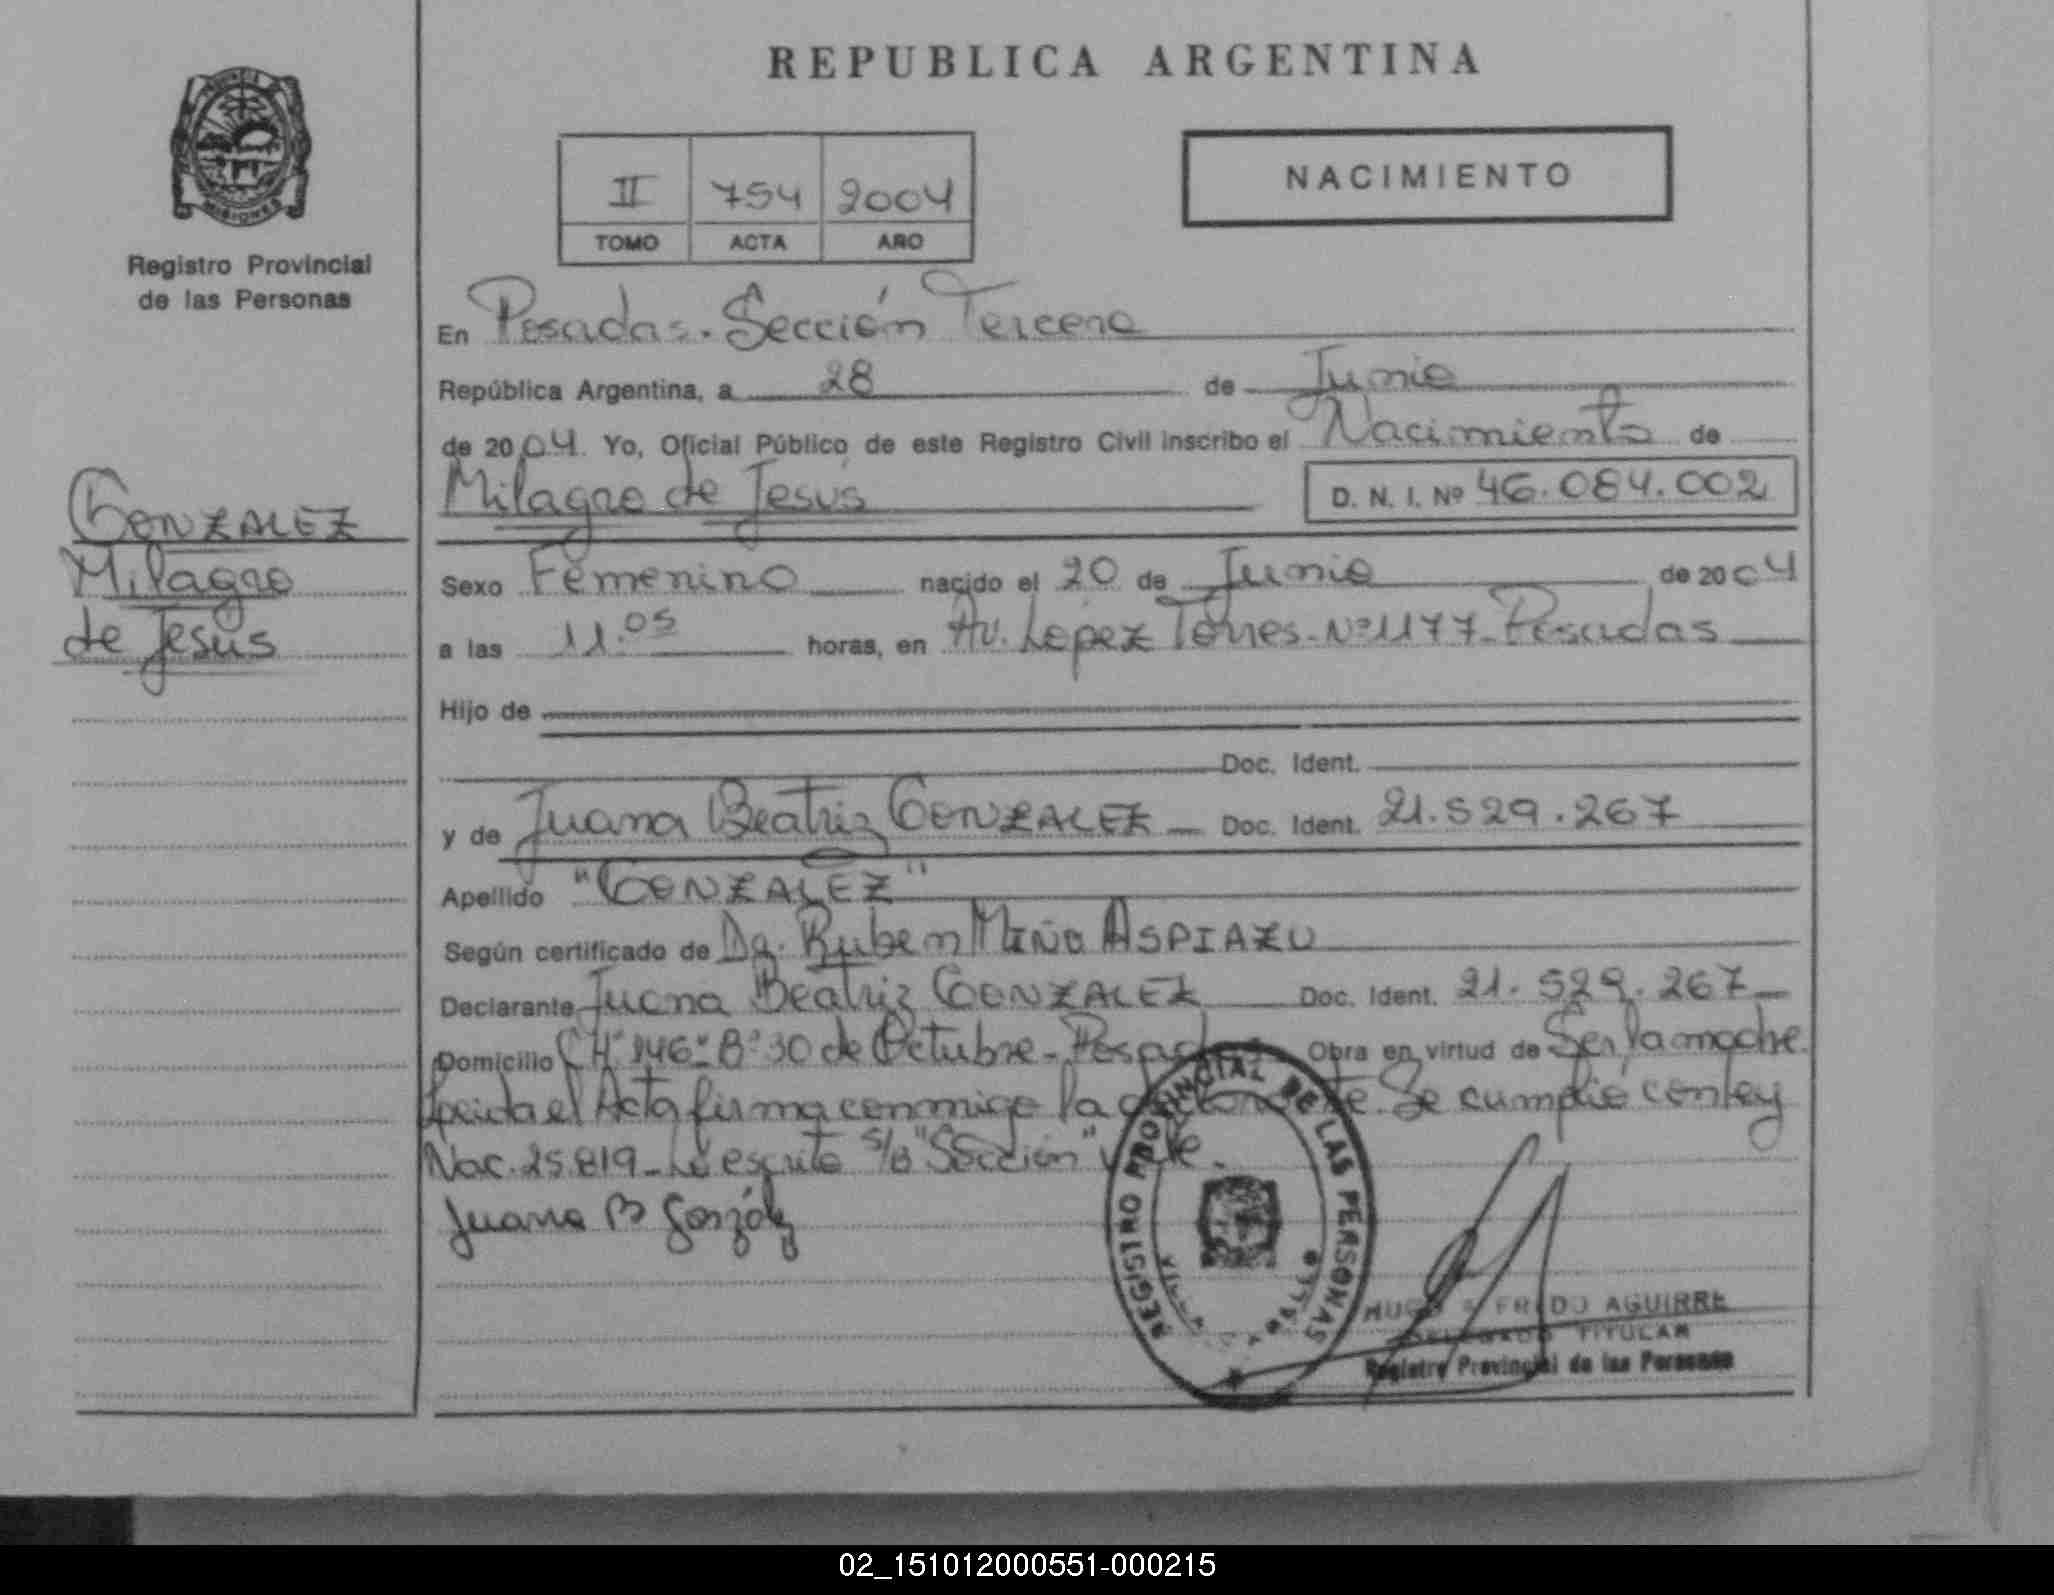 REPUBLICA ARGENTINA
PROVINCIA
MISIONES
Registro Provincial
de las Personas
II 754 2004
TOMO ACTA AÑO
NACIMIENTO
En Posadas. Sección Tercera
República Argentina, a 28 de Junio
de 2004. Yo, Oficial Público de este Registro Civil inscribo el Nacimiento de
Milagro de Jesús D. N. I. Nº 46.084.002
GONZALEZ
Milagro
de Jesús
Sexo Femenino nacido el 20 de Junio de 2004
a las 11.05 horas, en Av. Lopez Torres. Nº 1177. Posadas
Hijo de
Doc. Ident.
y de Juana Beatriz GONZALEZ Doc. Ident. 21.529.267
Apellido "GONZALEZ"
Según certificado de Dr. Ruben MIÑO ASPIAZU
Declarante Juana Beatriz GONZALEZ Doc. Ident. 21.529.267
Domicilio CH 146 Bº 30 de Octubre - Posadas Obra en virtud de Ser la madre.
Leida el Acta firma conmigo la declarante. Se cumplió con ley
Nac. 25.819 - Lo escrito S/B "Sección" Vale.
Juana B González
REGISTRO PROVINCIAL DE LAS PERSONAS
HUGO ALFREDO AGUIRRE
DELEGADO TITULAR
Registro Provincial de las Personas
02_151012000551-000215